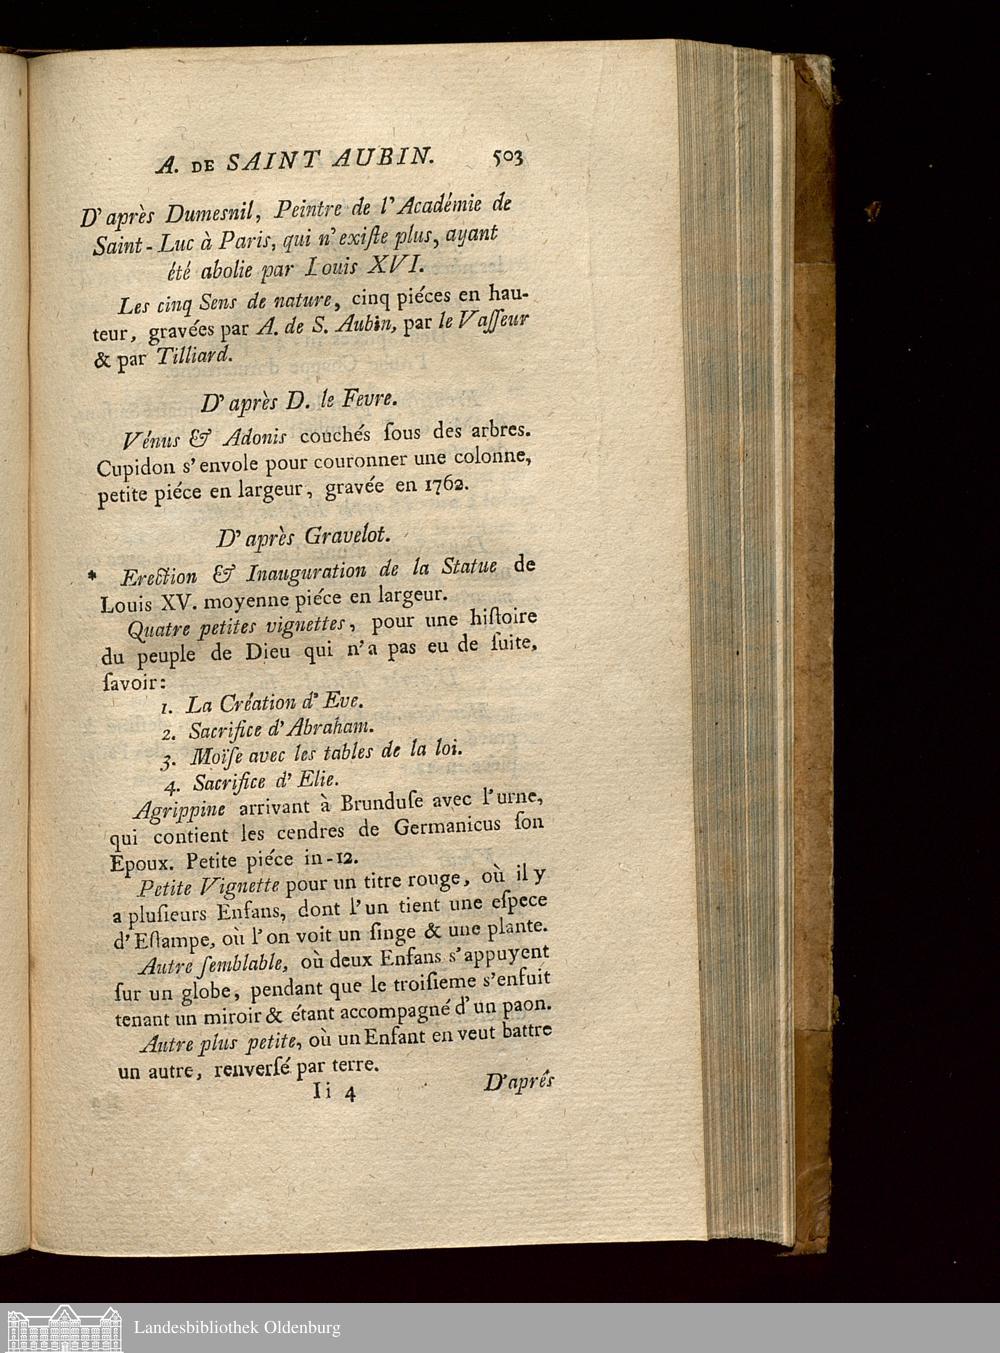 A. DE SAINT AUBIN. 503
D'après Dumesnil, Peintre de l'Académie de
Saint-Luc à Paris, qui n'exiſte plus, ayant
été abolie par Louis XVI.
Les cinq Sens de nature, cinq piéces en hau-
teur, gravées par A. de S. Aubin, par le Vaſſeur
& par Tilliard.
D'après D. le Fevre.
Vénus & Adonis couchés ſous des arbres.
Cupidon s'envole pour couronner une colonne,
petite piéce en largeur, gravée en 1762.
D'après Gravelot.
* Erection & Inauguration de la Statue de
Louis XV. moyenne piéce en largeur.
Quatre petites vignettes, pour une hiſtoire
du peuple de Dieu qui n'a pas eu de ſuite,
ſavoir:
1. La Création d'Eve.
2. Sacrifice d'Abraham.
3. Moïſe avec les tables de la loi.
4. Sacrifice d'Elie.
Agrippine arrivant à Brunduſe avec l'urne,
qui contient les cendres de Germanicus ſon
Epoux. Petite piéce in-12.
Petite Vignette pour un titre rouge, où il y
a pluſieurs Enfans, dont l'un tient une eſpece
d'Eſtampe, où l'on voit un ſinge & une plante.
Autre ſemblable, où deux Enfans s'appuyent
ſur un globe, pendant que le troiſieme s'enfuit
tenant un miroir & étant accompagné d'un paon.
Autre plus petite, où un Enfant en veut battre
un autre, renverſé par terre.
Ii 4 D'aprés
Landesbibliothek Oldenburg